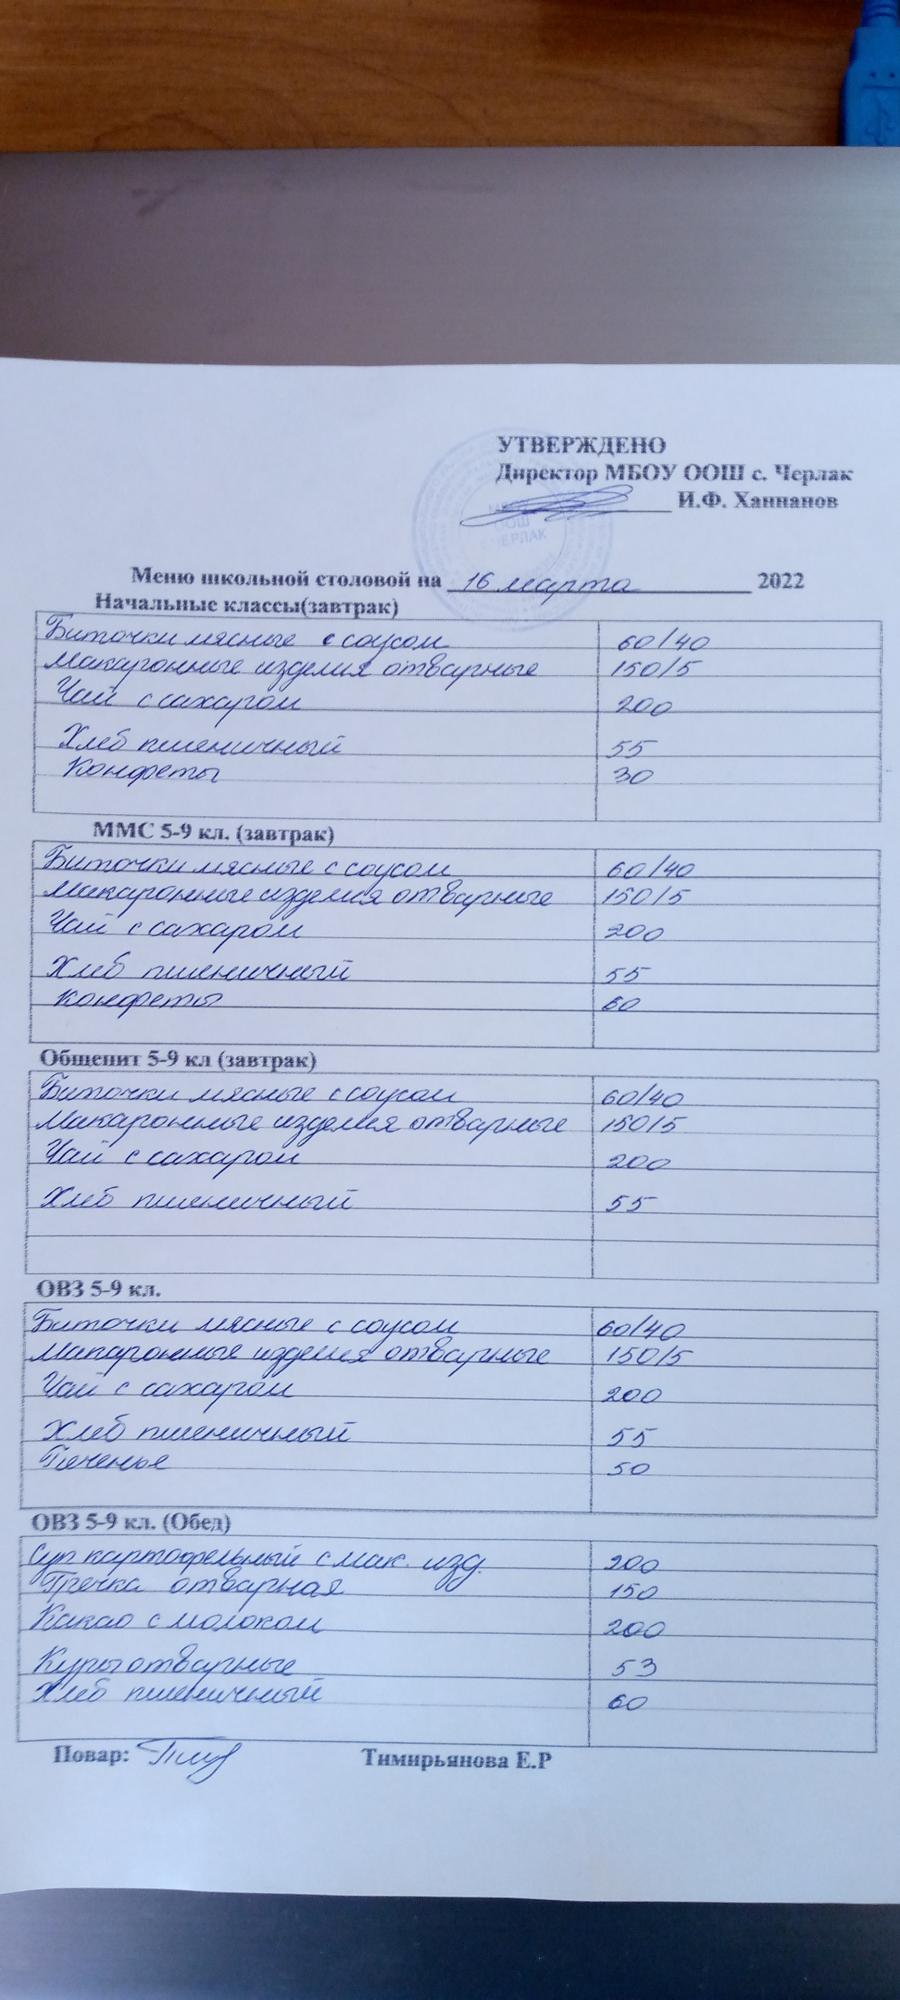 УТВЕРЖДЕНО
Директор МБОУ ООШ с. Черлак
И.Ф. Ханнанов
ООШ
ЧЕРЛАК
Меню школьной столовой на 16 марта 2022
Начальные классы(завтрак)
Биточки мясные с соусом 60/40
Макаронные изделия отварные 150/5
Чай с сахаром 200
Хлеб пшеничный 55
Конфеты 30
ММС 5-9 кл. (завтрак)
Биточки мясные с соусом 60/40
Макаронные изделия отварные 150/5
Чай с сахаром 200
Хлеб пшеничный 55
Конфеты 60
Общепит 5-9 кл (завтрак)
Биточки мясные с соусом 60/40
Макаронные изделия отварные 150/5
Чай с сахаром 200
Хлеб пшеничный 55
ОВЗ 5-9 кл.
Биточки мясные с соусом 60/40
Макаронные изделия отварные 150/5
Чай с сахаром 200
Хлеб пшеничный 55
Печенье 50
ОВЗ 5-9 кл. (Обед)
Суп картофельный с мак. изд. 200
Гречка отварная 150
Какао с молоком 200
Куры отварные 53
Хлеб пшеничный 60
Повар: Тимирьянова Е.Р